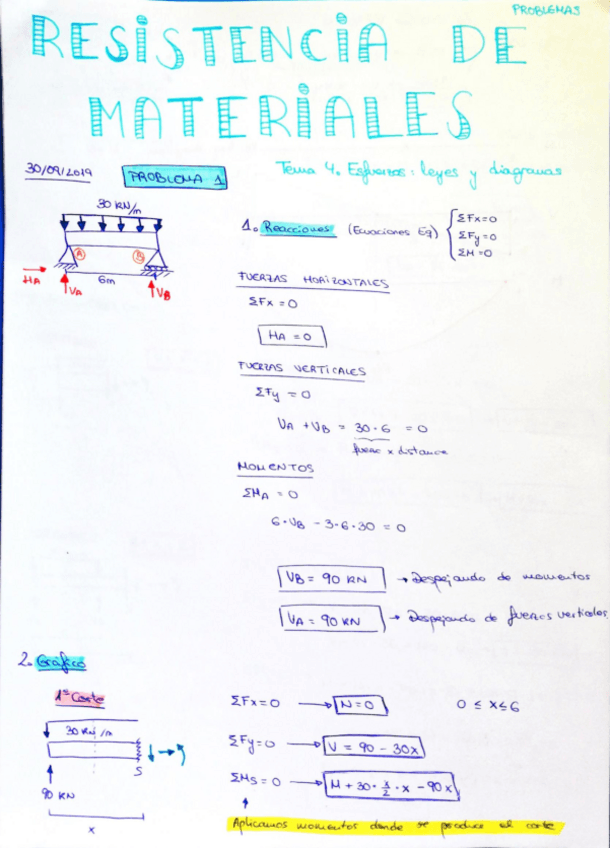 PROBLEMAS
RESISTENCIA DE
MATERIALES
30/09/2019
PROBLEMA 1
Tema 4. Esfuerzos: leyes y diagramas
30 KN/m
A
B
6m
HA
VA
VB
1. Reacciones (Ecuaciones Eq) ΣFx=0
ΣFy=0
ΣM=0
FUERZAS HORIZONTALES
ΣFx = 0
HA = 0
FUERZAS VERTICALES
ΣFy = 0
VA + VB = 30·6 = 0
fuerza x distancia
MOMENTOS
ΣMA = 0
6·VB - 3·6·30 = 0
VB = 90 KN → Despejando de momentos
VA = 90 KN → Despejando de fuerzas verticales
2. Gráfico
1er Corte
30 KN/m
S
90 KN
x
ΣFx=0 → N=0 0 ≤ x ≤ 6
ΣFy=0 → V = 90 - 30x
ΣMs=0 → M + 30·x/2·x - 90x
Aplicamos momentos donde se produce el corte